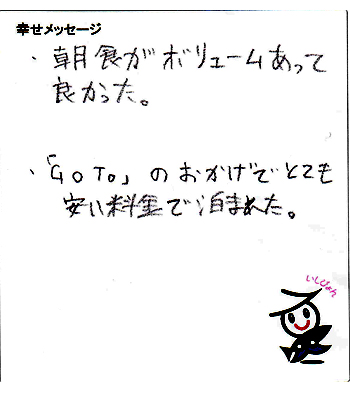 幸せメッセージ
・朝食がボリュームあって
良かった。
・「GOTO」のおかげでとても
安い料金で泊まれた。